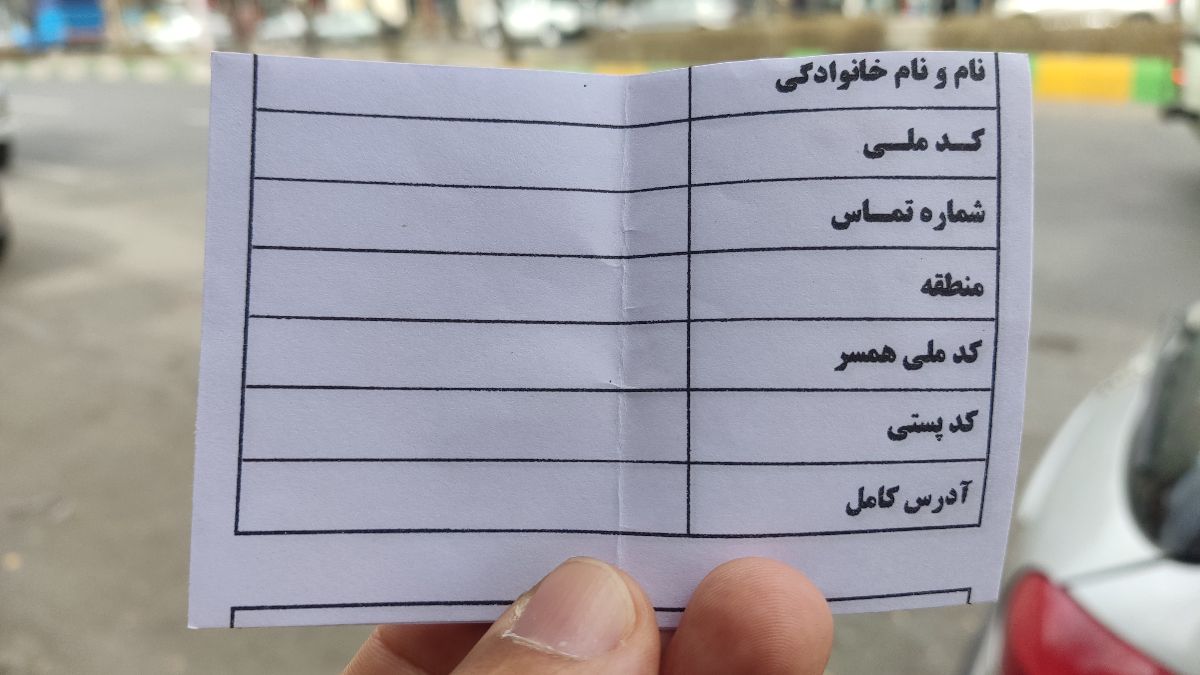 نام و نام خانوادگی
کد ملی
شماره تماس
منطقه
کد ملی همسر
کد پستی
آدرس کامل